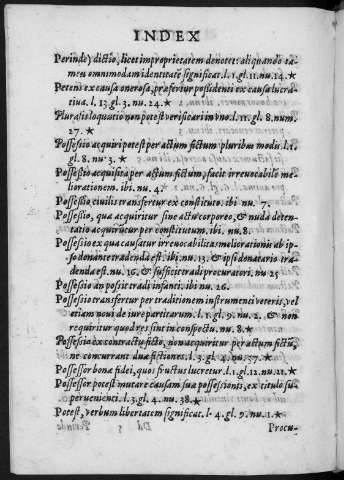 INDEX
Perinde, dictio, licet improprietatem denotet: aliquando ta-
men omnimodam identitatē significat. l. 1. gl. 11. nu. 14. ★
Petens ex causa onerosa, præfertur possidenti ex causa lucra-
tiua. l. 13. gl. 3. nu. 24. ★
Pluralis loquutio non potest verificari in vno. l. 11. gl. 8. num.
27. ★
Possessio acquiri potest per actum fictum pluribus modis. l. 1.
gl. 8. nu. 3. ★
Possessio acquisita per actum fictum, facit irreuocabilē me-
liorationem. ibi. nu. 4. ★
Possessio ciuilis transfertur ex constituto. ibi nu. 7.
Possessio, qua acquiritur sine actu corporeo, & nuda deten-
tatio acquiritur per constitutum. ibi nu. 8.
Possessio ex qua causatur irreuocabilitas meliorationis ab ip-
so donante tradenda est. ibi. nu. 13. & ipsi donatario tra-
denda est. nu. 16. & sufficit tradi procuratori. nu 25
Possessio an possit tradi infanti. ibi nu. 26.
Possessio transfertur per traditionem instrumenti veteris, vel
etiam noui de iure partitarum. l. 1. gl. 9. nu. 2. & non
requiritur quod res sint in conspectu. nu. 8. ★
Possessio ex contractu ficto, non acquiritur per actum fictū,
ne concurrant duæ fictiones. l. 3. gl. 4. nu. 37. ★
Possessor bonæ fidei, quos fructus lucretur. l. 1. gl. 12. nu. 21. ★
Possessor potest mutare causam suæ possessionis, ex titulo su-
peruenienti. l. 3. gl. 4. nu. 38. ★
Potest, verbum libertatem significat. l. 4. gl. 9. nu. 1. ★
Procu-